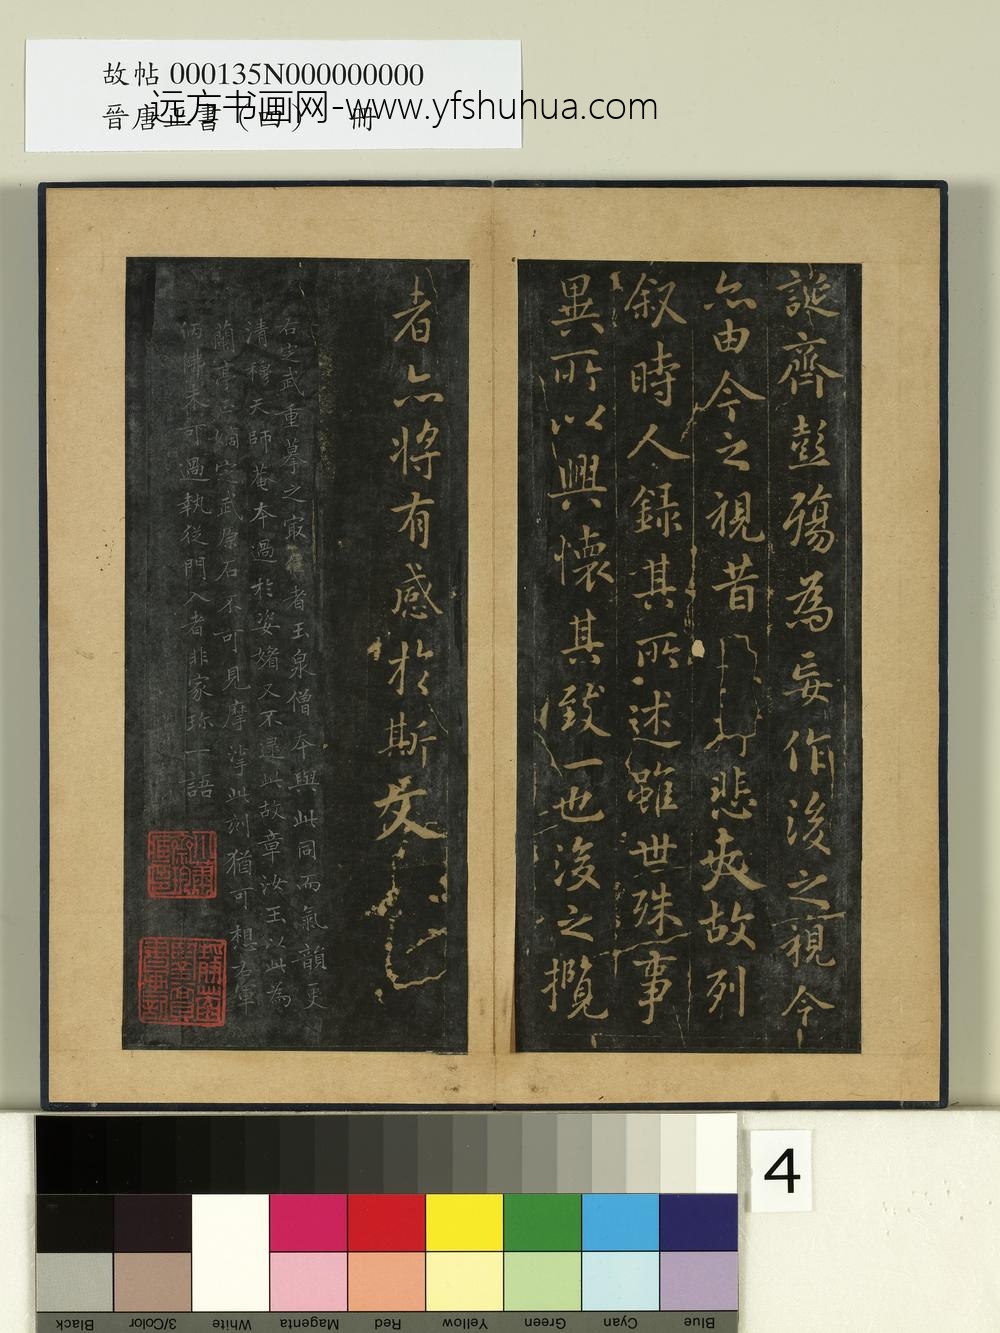 故帖 000135N000000000
晉唐正書（四） 冊
远方书画网-www.yfshuhua.com
誕齊彭殤為妄作後之視今
亦由今之視昔悲夫故列
叙時人錄其所述雖世殊事
異所以興懷其致一也後之攬
者亦將有感於斯文
右定武重摹之最者玉泉僧本與此同而氣韻更
清穆天師菴本過於姿媚又不逮此故章汝玉以此為
蘭亭正嫡定武原石不可見摩挲此刻猶可想右軍
仿佛未可過執從門入者非家珍一語
4
Black
3/Color
White
Magenta
Red
Yellow
Green
Cyan
Blue